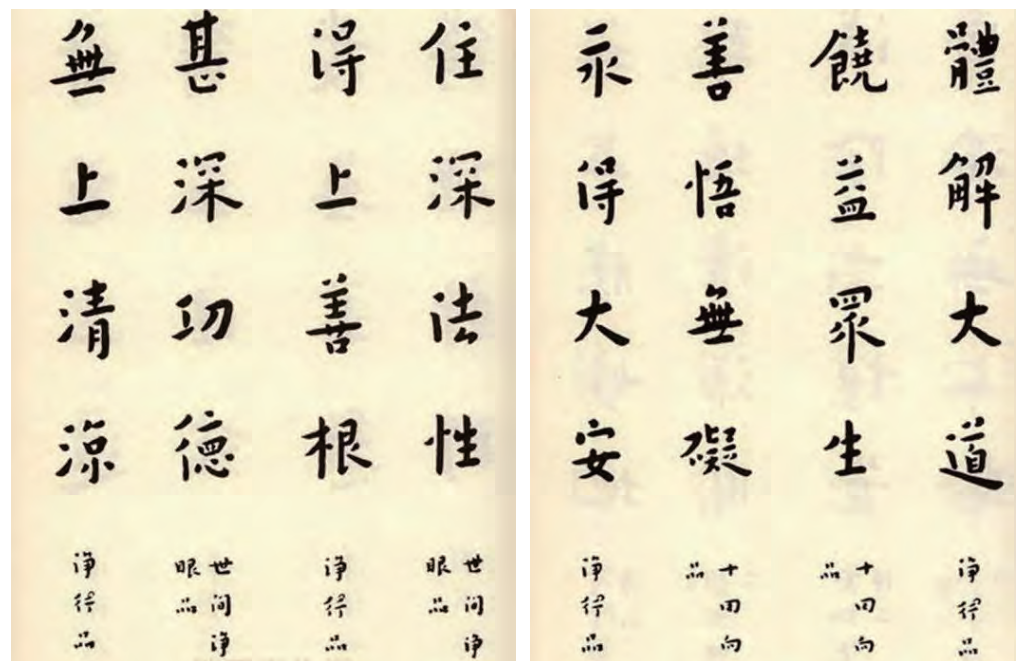 體解大道
淨行品
饒益眾生
十回向
品
善悟無礙
十回向
品
永得大安
淨行品
住深法性
世间淨
眼品
得上善根
淨行品
甚深功德
世间淨
眼品
無上清涼
淨行品